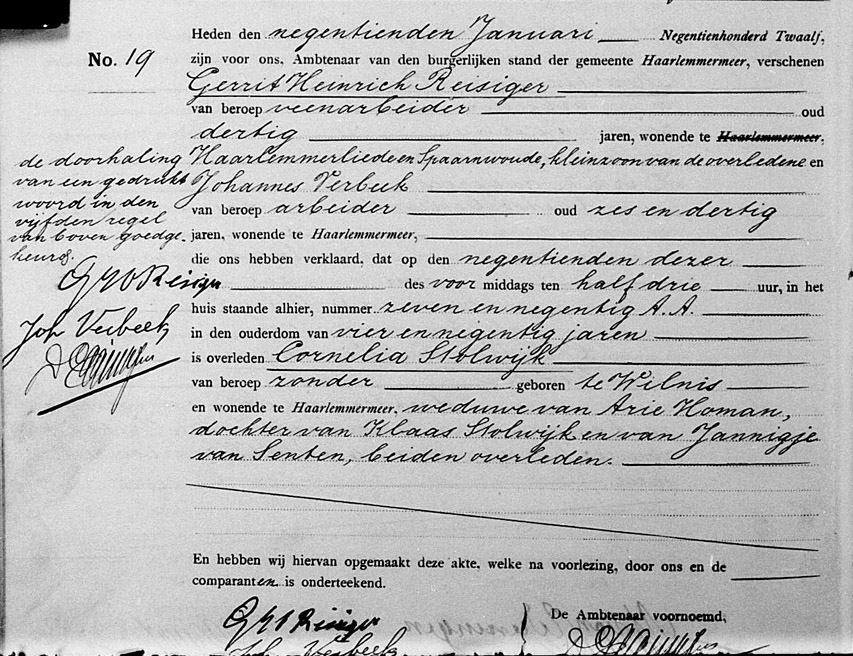 Heden den negentienden Januari Negentienhonderd Twaalf,
No. 19
zijn voor ons, Ambtenaar van den burgerlijken stand der gemeente Haarlemmermeer, verschenen
Gerrit Heinrich Reisiger
van beroep veenarbeider oud
dertig jaren, wonende te Haarlemmermeer,
Haarlemmerliede en Spaarnwoude, kleinzoon van de overledene en
Johannes Verbeek
van beroep arbeider oud zes en dertig
jaren, wonende te Haarlemmermeer,
die ons hebben verklaard, dat op den negentienden dezer
des voor middags ten half drie uur, in het
huis staande alhier, nummer zeven en negentig A.A.
in den ouderdom van vier en negentig jaren
is overleden Cornelia Stolwijk
van beroep zonder geboren te Wilnis
en wonende te Haarlemmermeer, weduwe van Arie Homan,
dochter van Klaas Stolwijk en van Jannigje
van Senten, beiden overleden.
de doorhaling
van een gedrukt
woord in den
vijfden regel
van boven goedge-
keurd.
G H Reisiger
Joh Verbeek
En hebben wij hiervan opgemaakt deze akte, welke na voorlezing, door ons en de
comparanten is onderteekend.
De Ambtenaar voornoemd,
G H Reisiger
Joh Verbeek